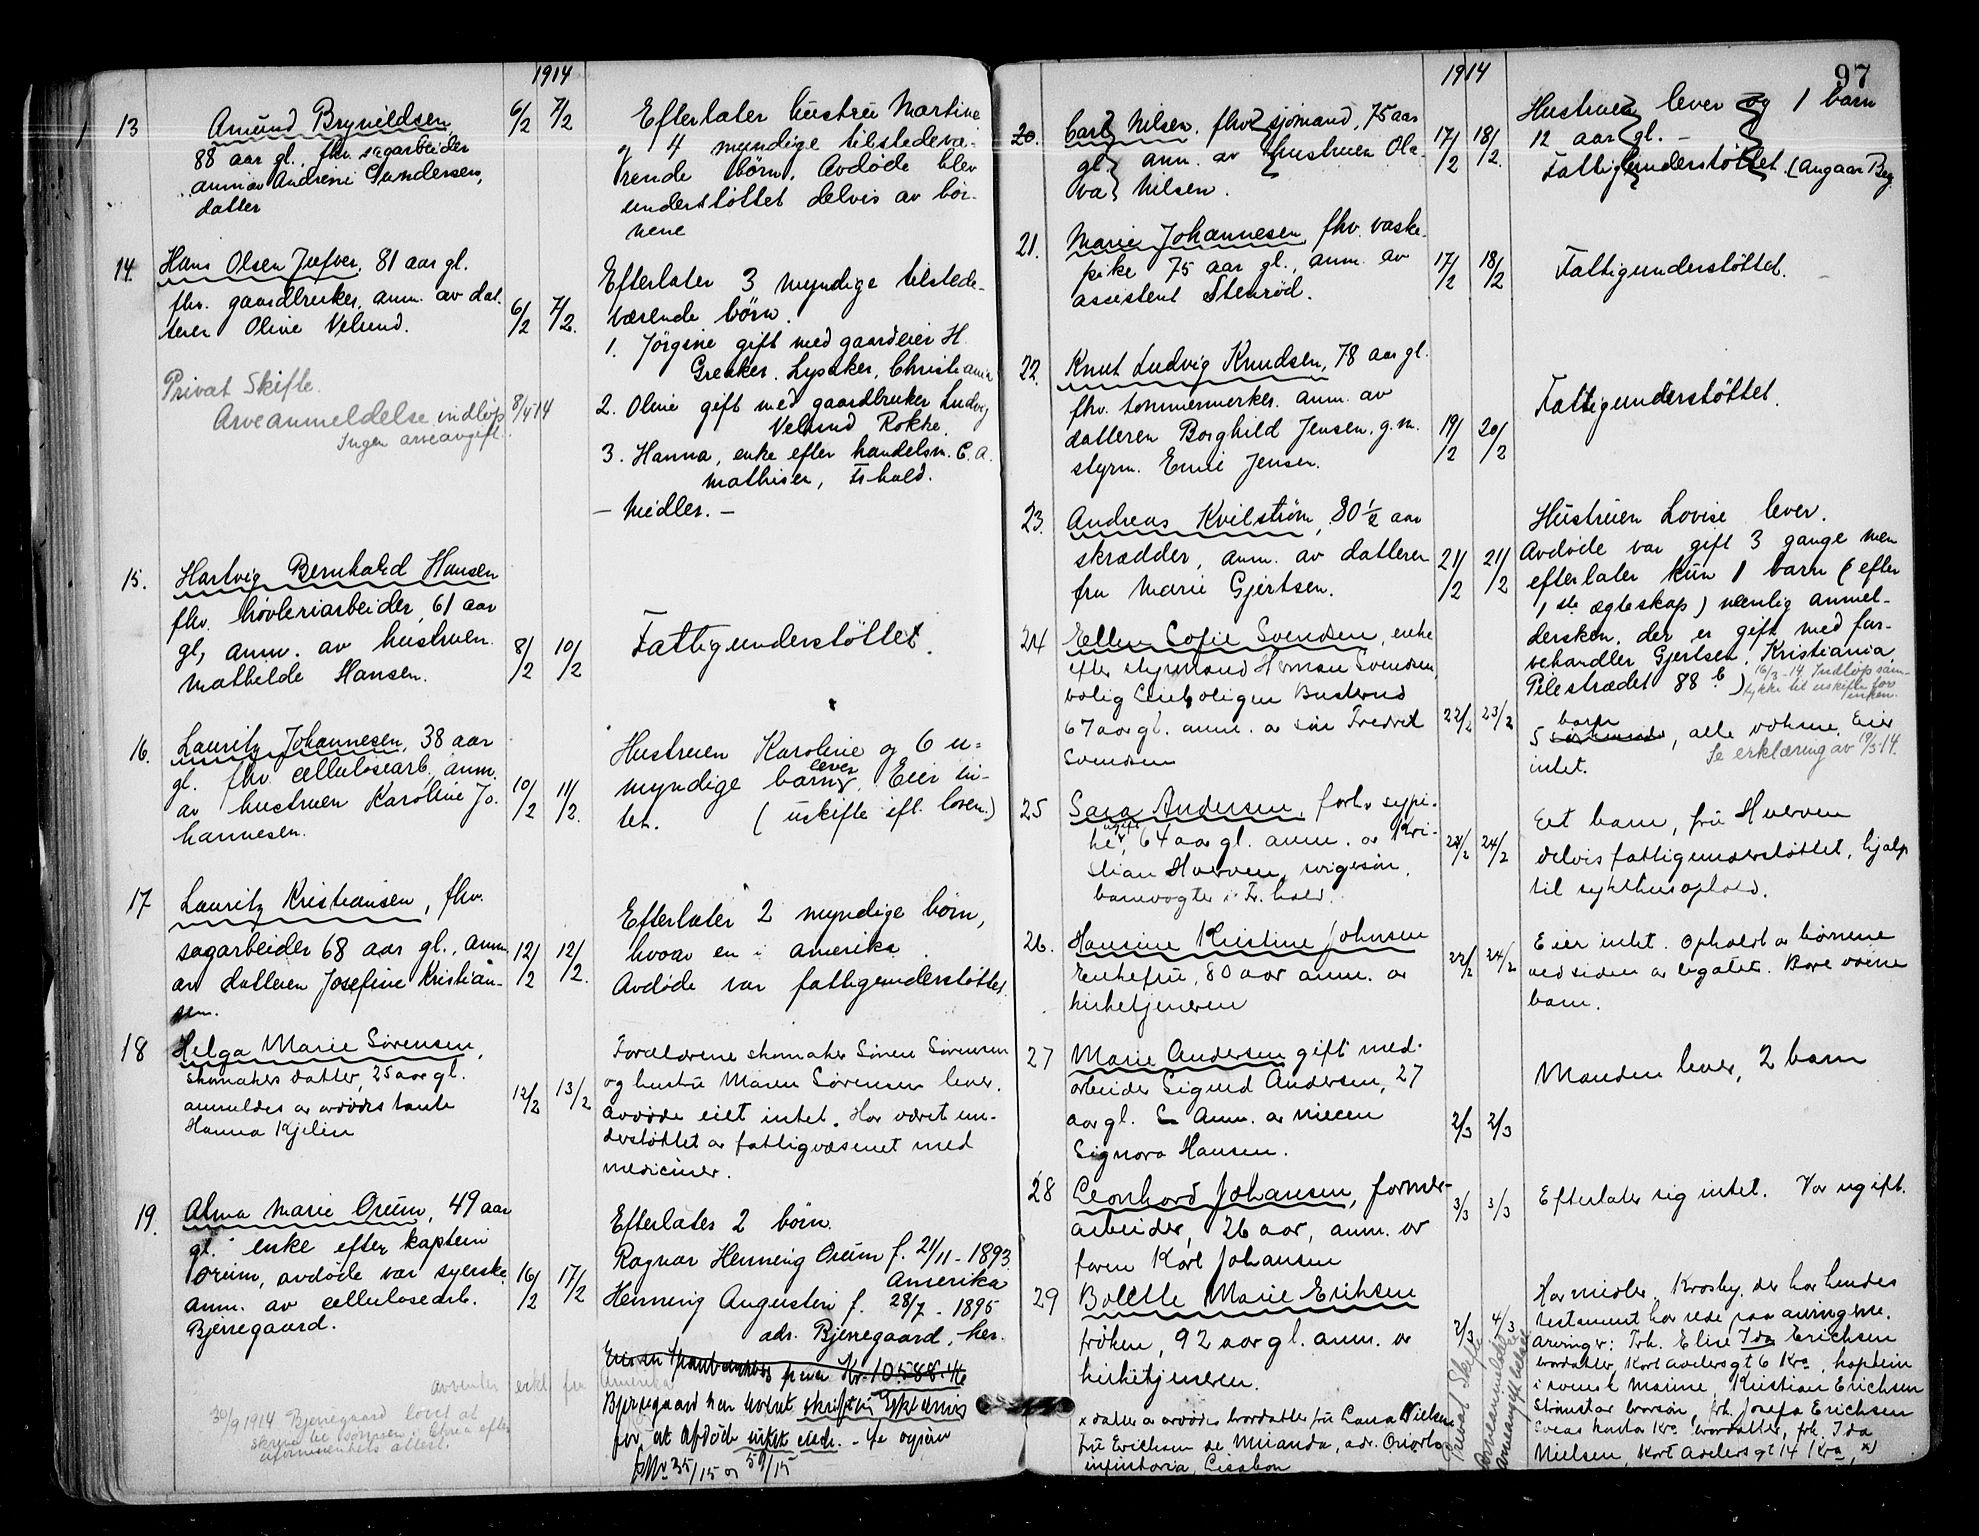 1914
13 Amund Brynildsen 6/2 7/2
88 aar gl., fhv. sagarbeider
anm. av Andrine Gundersen,
datter
Efterlater hustru Martine
og 4 myndige tilstedevæ-
rende børn. Avdøde blev
understøttet delvis av bør-
nene
14. Hans Olsen 81 aar gl.
fhv. gaardbruker, anm. av dat-
teren Oline Velund. 6/2 7/2.
Privat Skifte.
Arveanmeldelse indløp 8/4 14
Ingen arveavgift.
Efterlater 3 myndige tilstede-
værende børn.
1. Jörgine gift med gaardeier H.
Greaker, Lysaker, Christiania
2. Oline gift med gaardbruker Ludvig
Velund Rokke.
3. Hanna, enke efter handelsm. C. A.
Mathisen, Fr.hald.
- Midler. -
15. Hartvig Bernhard Hansen
fhv. høvleriarbeider, 61 aar
gl, anm. av hustruen 8/2 10/2
Mathilde Hansen.
Fattigunderstöttet.
16. Lauritz Johannesen, 38 aar
gl. fhv cellulosearb. anm.
av hustruen Karoline Jo- 10/2 11/2.
hannesen.
Hustruen Karoline og 6 u-
myndige barn lever. Eier in-
tet. (uskifte eft. loven.)
17 Lauritz Kristiansen, fhv.
sagarbeider 68 aar gl., anm. 12/2 12/2.
av datteren Josefine Kristian-
sen.
Efterlater 2 myndige børn,
hvorav en i Amerika.
Avdøde var fattigunderstøttet.
18 Helga Marie Sørensen,
skomakers datter, 25 aar gl.
anmeldes av avdødes tante 12/2 13/2
Hanna Kjelin
Forældrene skomaker Sören Sørensen
og hustru Maren Sørensen lever.
Avdøde eiet intet. Har været un-
derstøttet av fattigvæsenet med
mediciner.
19. Alma Marie Orum, 49 aar
gl. enke efter kaptein
Orum, avdøde var syerske 16/2 17/2
anm. av cellulosearb.
Bjerregaard.
30/9 1914 Bjerregaard lovet at
skrive til sönnen i
attest.
Efterlater 2 børn.
Ragnar Henning Orum f. 21/11 - 1893.
Amerika
Henning Augustin f. 28/7 - 1895
adr. Bjerregaard, her.
Kr. 105.88.
Amerika
Bjerregaard har
for at Afdøde
35/15 og 59/15
1914
97
20. Carl Nilsen. fhv sjømand, 75 aar
gl. anm. av hustruen Ola- 17/2 18/2.
va Nilsen.
Hustruen lever og 1 barn
12 aar gl. -
Fattigunderstøttet. (Angaar Beg
21. Marie Johannesen, fhv. vaske-
pike 75 aar gl., anm. av 17/2 18/2
assistent Stenrød.
Fattigunderstøttet.
22. Knut Ludvig Knudsen, 78 aar gl.
fhv. tømmermerker. anm. av
datteren Borghild Jensen, g.m. 19/2 20/2
styrm. Emil Jensen.
Fattigunderstøttet.
23. Andreas Kvilstrøm, 80 ½ aar
skrædder, anm. av datteren 21/2 21/2
fru Marie Gjertsen.
Hustruen Lovise lever.
Avdøde var gift 3 gange men
efterlater kun 1 barn (efter
1ste ægteskap) nemlig anmel-
dersken. der er gift med far-
vehandler Gjertsen, Kristiania,
Pilestrædet 88 b)
16/3-14. Indløp sam-
tykke til uskifte for
enken.
24 Ellen Sofie Svendsen, enke
efter styrmand Herman Svendsen,
bolig Busterud
67 aar gl. anm. av sön Fredrik 22/2 23/2
Svendsen
5 barn, alle voksne. Eier
intet. Se erklæring av 19/5 14.
25 Sara Andersen, forh. sypi-
ke, ugift, 64 aar gl. anm. av Kri- 23/2 24/2
stian Hverven, svigersön,
banevogter i Fr.hald.
Eet barn, fru Hverven
delvis fattigunderstøttet, hjalp
til sykehusophold.
26. Hansine Kristine Johnsen
Enkefru, 80 aar anm. av 22/2 24/2
kirketjeneren
Eier intet. Opholdt av børnene
ved siden av legatet. Bare voxne
barn.
27 Marie Andersen gift med
arbeider Sigurd Andersen, 27
aar gl. Anm. av niecen 2/3 2/3
Signora Hansen.
Manden lever, 2 barn
28 Leonhard Johansen, former-
arbeider, 26 aar, anm. av 3/3 3/3
faren Karl Johansen
Efterlater sig intet. Var ugift.
29 Bolette Marie Eriksen
frøken, 92 aar gl. anm. av 2/3 4/3
kirketjeneren.
Privat Skifte
Arveanmeldelse
x datter av avdødes brordatter fru Laura Nielsen
fru Erichsen de Miranda, adr.
Lissabon
Har midler. Krosby, der har hendes
testament har rede paa
arvinger: Frk. Elise Ida Erichsen
brordatter, Kort Adelersgt 6 Kra, kaptein
i svensk Marine, Kristian Erichsen
brorsøn, frk. Josefa Erichsen
Kra brordatter, frk. Ida
Nielsen, Kort Adelersgt 14 Kra, x)